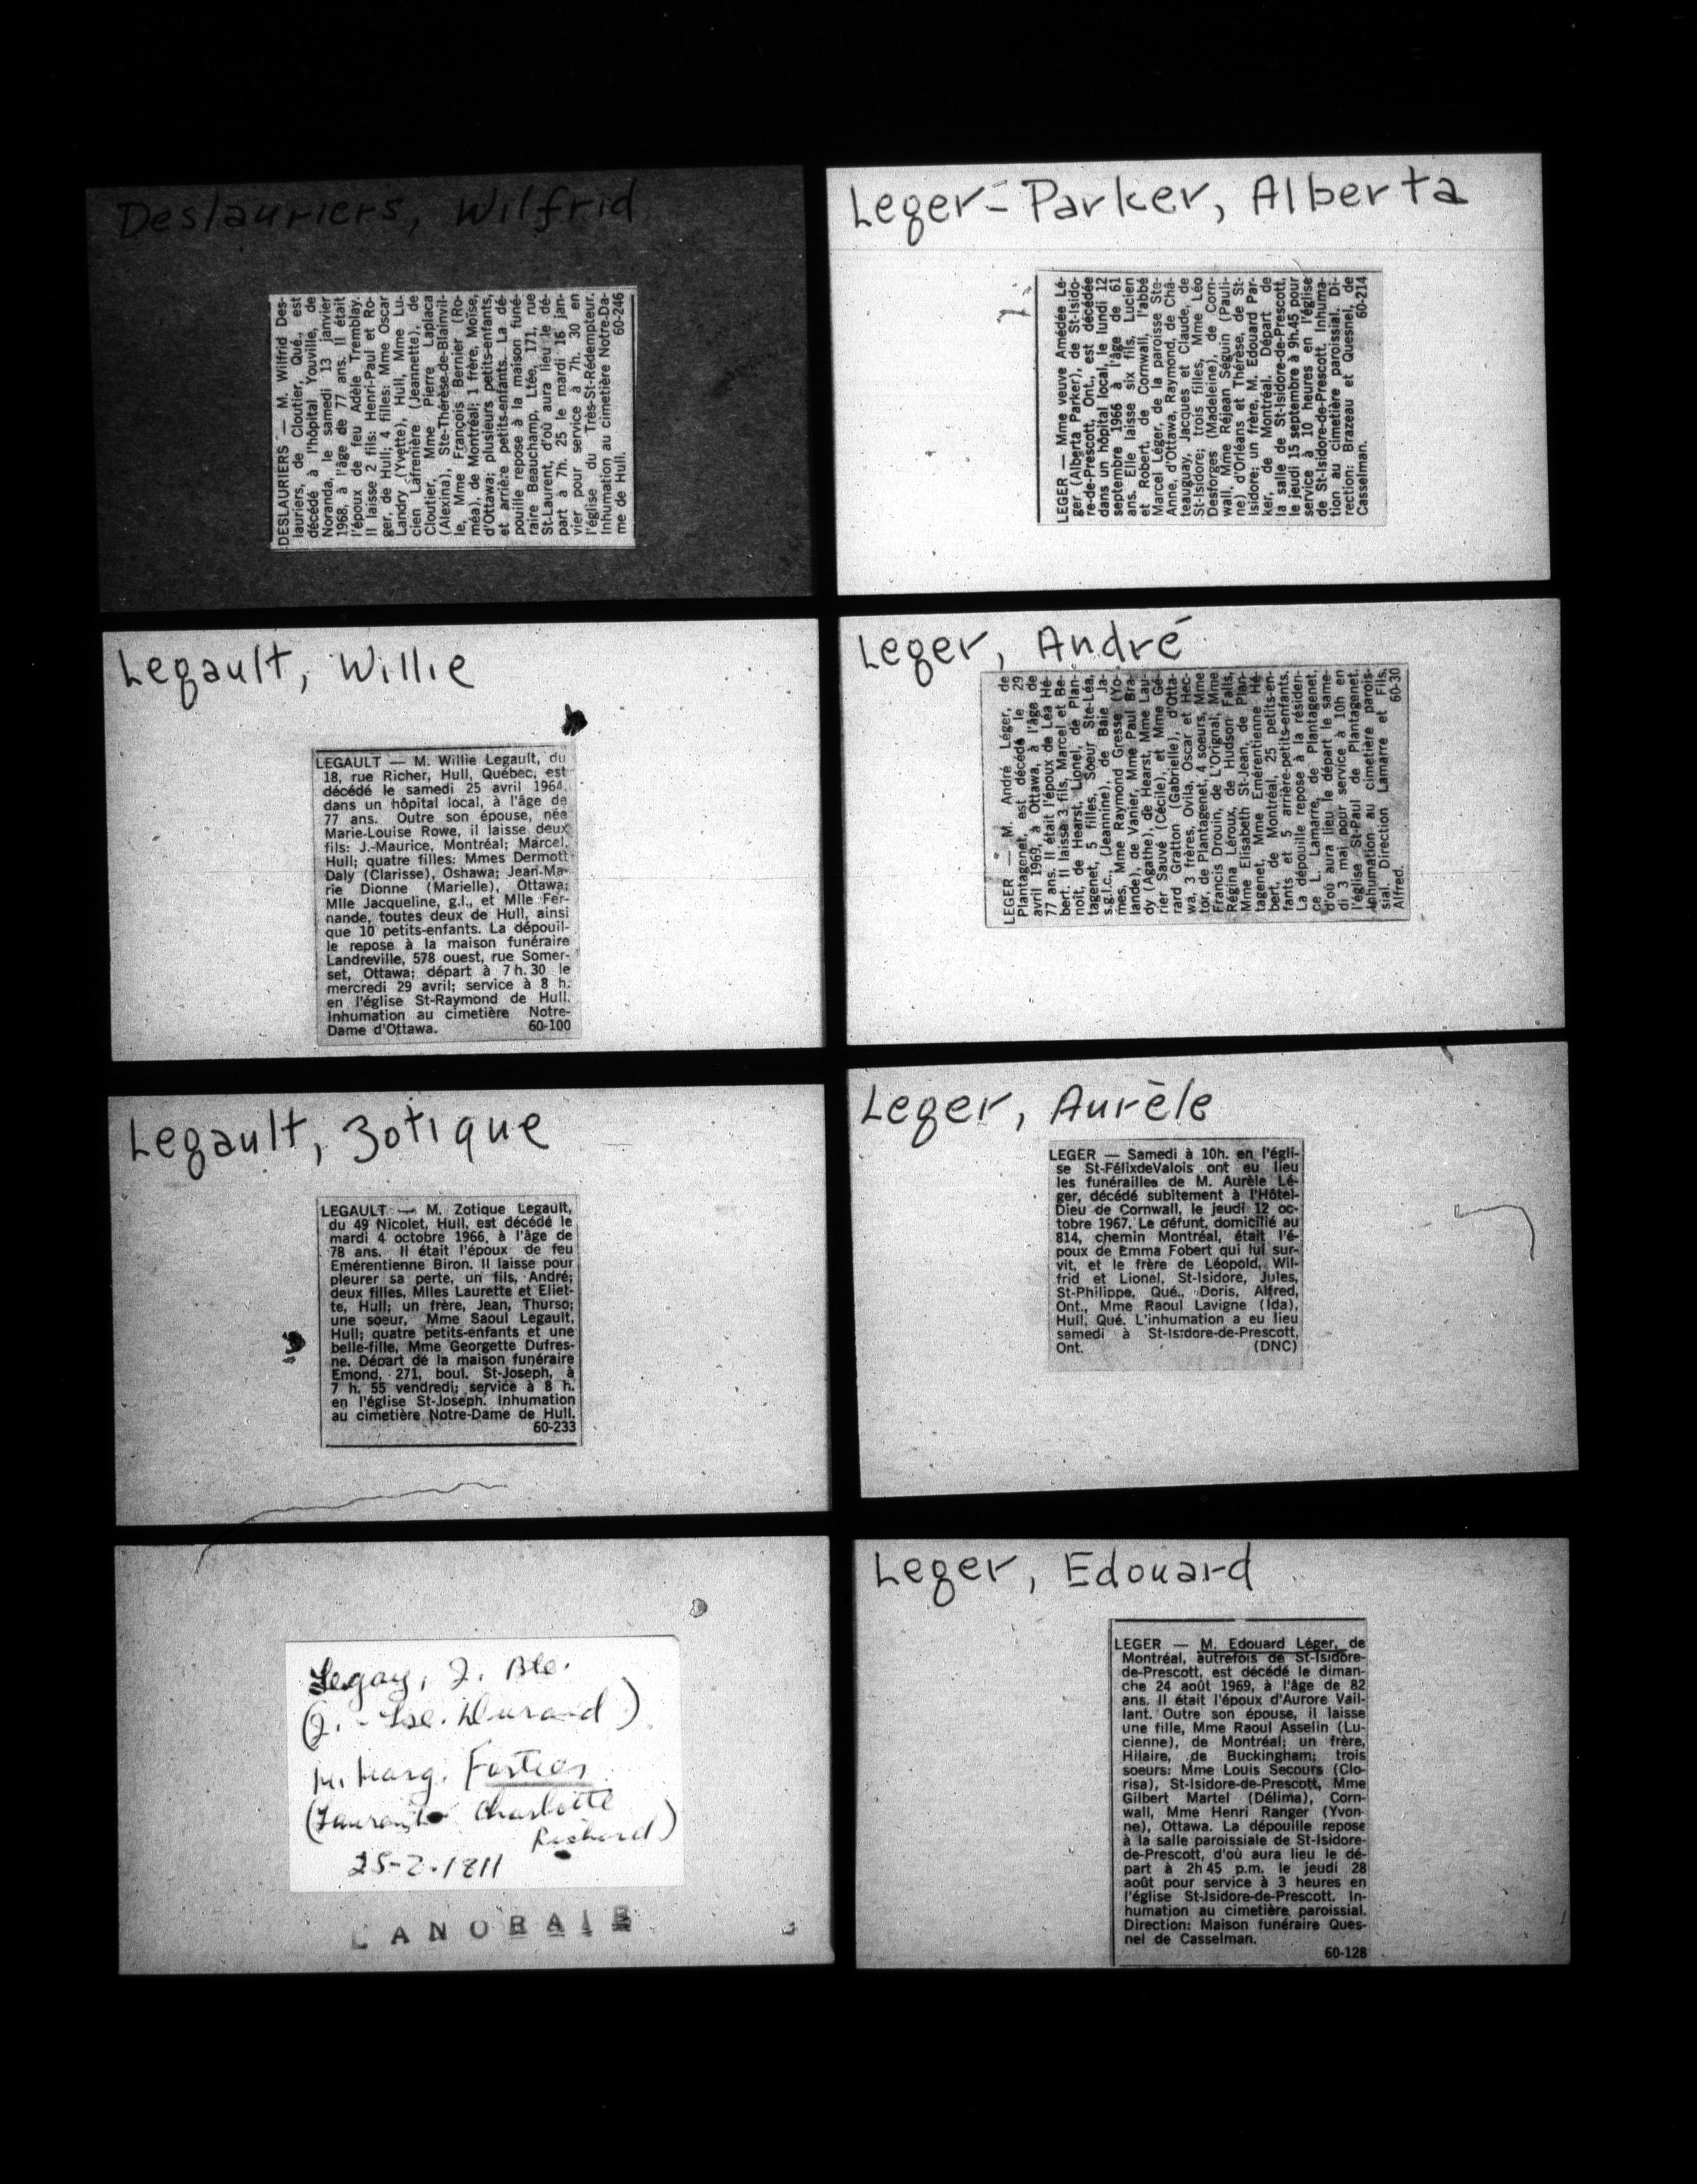 Deslauriers, Wilfrid
DESLAURIERS — M. Wilfrid Des-
lauriers, de Cloutier, Qué., est
décédé à l'hôpital Youville, de
Noranda, le samedi 13 janvier
1968, à l'âge de 77 ans. Il était
l'époux de feu Adèle Tremblay.
Il laisse 2 fils: Henri-Paul et Ro-
ger, de Hull; 4 filles: Mme Oscar
Landry (Yvette), Hull, Mme Lu-
cien Lafrenière (Jeannette), de
Cloutier, Mme Pierre Laplaca
(Alexina), Ste-Thérèse-de-Blainvil-
le, Mme François Bernier (Ro-
méa), de Montréal; 1 frère, Moïse,
d'Ottawa; plusieurs petits-enfants,
et arrière petits-enfants. La dé-
pouille repose à la maison funé-
raire Beauchamp, Ltée, 171, rue
St-Laurent, d'où aura lieu le dé-
part à 7h. 25 le mardi 16 jan-
vier pour service à 7h. 30 en
l'église du Très-St-Rédempteur.
Inhumation au cimetière Notre-Da-
me de Hull. 60-246
Legault, Willie
LEGAULT — M. Willie Legault, du
18, rue Richer, Hull, Québec, est
décédé le samedi 25 avril 1964,
dans un hôpital local, à l'âge de
77 ans. Outre son épouse, née
Marie-Louise Rowe, il laisse deux
fils: J.-Maurice, Montréal; Marcel,
Hull; quatre filles: Mmes Dermott
Daly (Clarisse), Oshawa; Jean-Ma-
rie Dionne (Marielle), Ottawa;
Mlle Jacqueline, g.l., et Mlle Fer-
nande, toutes deux de Hull, ainsi
que 10 petits-enfants. La dépouil-
le repose à la maison funéraire
Landreville, 578 ouest, rue Somer-
set, Ottawa; départ à 7 h. 30 le
mercredi 29 avril; service à 8 h.
en l'église St-Raymond de Hull.
Inhumation au cimetière Notre-
Dame d'Ottawa. 60-100
Legault, Zotique
LEGAULT — M. Zotique Legault,
du 49 Nicolet, Hull, est décédé le
mardi 4 octobre 1966, à l'âge de
78 ans. Il était l'époux de feu
Emérentienne Biron. Il laisse pour
pleurer sa perte, un fils, André;
deux filles, Mlles Laurette et Eliet-
te, Hull; un frère, Jean, Thurso;
une soeur, Mme Saoul Legault,
Hull; quatre petits-enfants et une
belle-fille, Mme Georgette Dufres-
ne. Départ de la maison funéraire
Emond, 271, boul. St-Joseph, à
7 h. 55 vendredi; service à 8 h.
en l'église St-Joseph. Inhumation
au cimetière Notre-Dame de Hull.
60-233
J. Bte.
M. Marg.
Charlotte
Richard)
25-2-1811
LANORAIE
Leger-Parker, Alberta
LEGER — Mme veuve Amédée Lé-
ger (Alberta Parker), de St-Isido-
re-de-Prescott, Ont., est décédée
dans un hôpital local, le lundi 12
septembre 1966 à l'âge de 61
ans. Elle laisse six fils, Lucien
et Robert, de Cornwall, l'abbé
Marcel Léger, de la paroisse Ste-
Anne, d'Ottawa, Raymond, de Châ-
teauguay, Jacques et Claude, de
St-Isidore; trois filles, Mme Léo
Desforges (Madeleine), de Corn-
wall, Mme Réjean Séguin (Pauli-
ne) d'Orléans et Thérèse, de St-
Isidore; un frère, M. Edouard Par-
ker, de Montréal. Départ de
la salle de St-Isidore-de-Prescott,
le jeudi 15 septembre à 9h.45 pour
service à 10 heures en l'église
de St-Isidore-de-Prescott. Inhuma-
tion au cimetière paroissial. Di-
rection: Brazeau et Quesnel, de
Casselman. 60-214
Leger, André
LEGER — M. André Léger, de
Plantagenet, est décédé le 29
avril 1969, à Ottawa, à l'âge de
77 ans. Il était l'époux de Léa Hé-
bert. Il laisse 3 fils, Marcel et Be-
noit, de Hearst, Lionel, de Plan-
tagenet, 5 filles, Soeur Ste-Léa,
s.g.l.c., (Jeannine), de Baie Ja-
mes, Mme Raymond Gresse (Yo-
lande), de Vanier, Mme Paul Bra-
dy (Agathe), de Hearst, Mme Lau-
rier Sauvé (Cécile), et Mme Gé-
rard Gratton (Gabrielle), d'Otta-
wa, 3 frères, Ovila, Oscar et Hec-
tor, de Plantagenet, 4 soeurs, Mme
Francis Drouin, de L'Orignal, Mme
Régina Léroux, de Hudson Falls,
Mme Elisabeth St-Jean, de Plan-
tagenet, Mme Emérentienne Hé-
bert, de Montréal, 25 petits-en-
fants et 5 arrière-petits-enfants.
La dépouille repose à la résiden-
ce L. Lamarre, de Plantagenet,
d'où aura lieu le départ le same-
di 3 mai pour service à 10h en
l'église St-Paul de Plantagenet.
Inhumation au cimetière parois-
sial. Direction Lamarre et Fils,
Alfred. 60-30
Leger, Aurèle
LEGER — Samedi à 10h. en l'égli-
se St-FélixdeValois ont eu lieu
les funérailles de M. Aurèle Lé-
ger, décédé subitement à l'Hôtel-
Dieu de Cornwall, le jeudi 12 oc-
tobre 1967. Le défunt, domicilié au
814, chemin Montréal, était l'é-
poux de Emma Fobert qui lui sur-
vit, et le frère de Léopold, Wil-
frid et Lionel, St-Isidore, Jules,
St-Philippe, Qué., Doris, Alfred,
Ont., Mme Raoul Lavigne (Ida),
Hull, Qué. L'inhumation a eu lieu
samedi à St-Isidore-de-Prescott,
Ont. (DNC)
Leger, Edouard
LEGER — M. Edouard Léger, de
Montréal, autrefois de St-Isidore-
de-Prescott, est décédé le diman-
che 24 août 1969, à l'âge de 82
ans. Il était l'époux d'Aurore Vail-
lant. Outre son épouse, il laisse
une fille, Mme Raoul Asselin (Lu-
cienne), de Montréal; un frère,
Hilaire, de Buckingham; trois
soeurs: Mme Louis Secours (Clo-
risa), St-Isidore-de-Prescott, Mme
Gilbert Martel (Délima), Corn-
wall, Mme Henri Ranger (Yvon-
ne), Ottawa. La dépouille repose
à la salle paroissiale de St-Isidore-
de-Prescott, d'où aura lieu le dé-
part à 2h 45 p.m. le jeudi 28
août pour service à 3 heures en
l'église St-Isidore-de-Prescott. In-
humation au cimetière paroissial.
Direction: Maison funéraire Ques-
nel de Casselman.
60-128